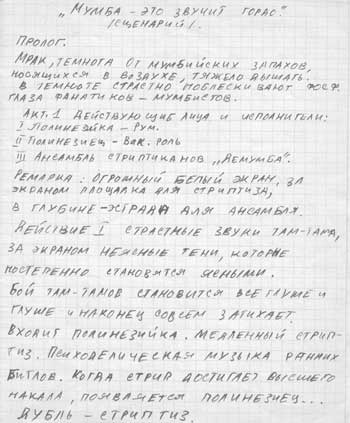 „МУМБА - ЭТО ЗВУЧИТ ГОРДО."
/СЦЕНАРИЙ/.
ПРОЛОГ.
МРАК, ТЕМНОТА ОТ МУМБИЙСКИХ ЗАПАХОВ,
НОСЯЩИХСЯ В ВОЗДУХЕ, ТЯЖЕЛО ДЫШАТЬ.
В ТЕМНОТЕ СТРАСТНО ПОБЛЕСКИВАЮТ
ГЛАЗА ФАНАТИКОВ - МУМБИСТОВ.
АКТ.1 ДЕЙСТВУЮЩИЕ ЛИЦА И ИСПОЛНИТЕЛИ:
I ПОЛИНЕЗИЙКА - РУМ.
II ПОЛИНЕЗИЕЦ - ВАК. РОЛЬ
III АНСАМБЛЬ СТРИПТИКАНОВ „ДЕМУМБА".
РЕМАРКА: ОГРОМНЫЙ БЕЛЫЙ ЭКРАН, ЗА
ЭКРАНОМ ПЛОЩАДКА ДЛЯ СТРИПТИЗА,
В ГЛУБИНЕ - ЭСТРАДА ДЛЯ АНСАМБЛЯ.
ДЕЙСТВИЕ I СТРАСТНЫЕ ЗВУКИ ТАМ-ТАМА,
ЗА ЭКРАНОМ НЕЯСНЫЕ ТЕНИ, КОТОРЫЕ
ПОСТЕПЕННО СТАНОВЯТСЯ ЯСНЫМИ.
БОЙ ТАМ-ТАМОВ СТАНОВИТСЯ ВСЕ ГЛУШЕ И
ГЛУШЕ И НАКОНЕЦ СОВСЕМ ЗАТИХАЕТ.
ВХОДИТ ПОЛИНЕЗИЙКА. МЕДЛЕННЫЙ СТРИП-
ТИЗ. ПСИХОДЕЛИЧЕСКАЯ МУЗЫКА РАННИХ
БИТЛОВ. КОГДА СТРИП ДОСТИГАЕТ ВЫСШЕГО
НАКАЛА, ПОЯВЛЯЕТСЯ ПОЛИНЕЗИЕЦ...
ДУБЛЬ - СТРИПТИЗ.